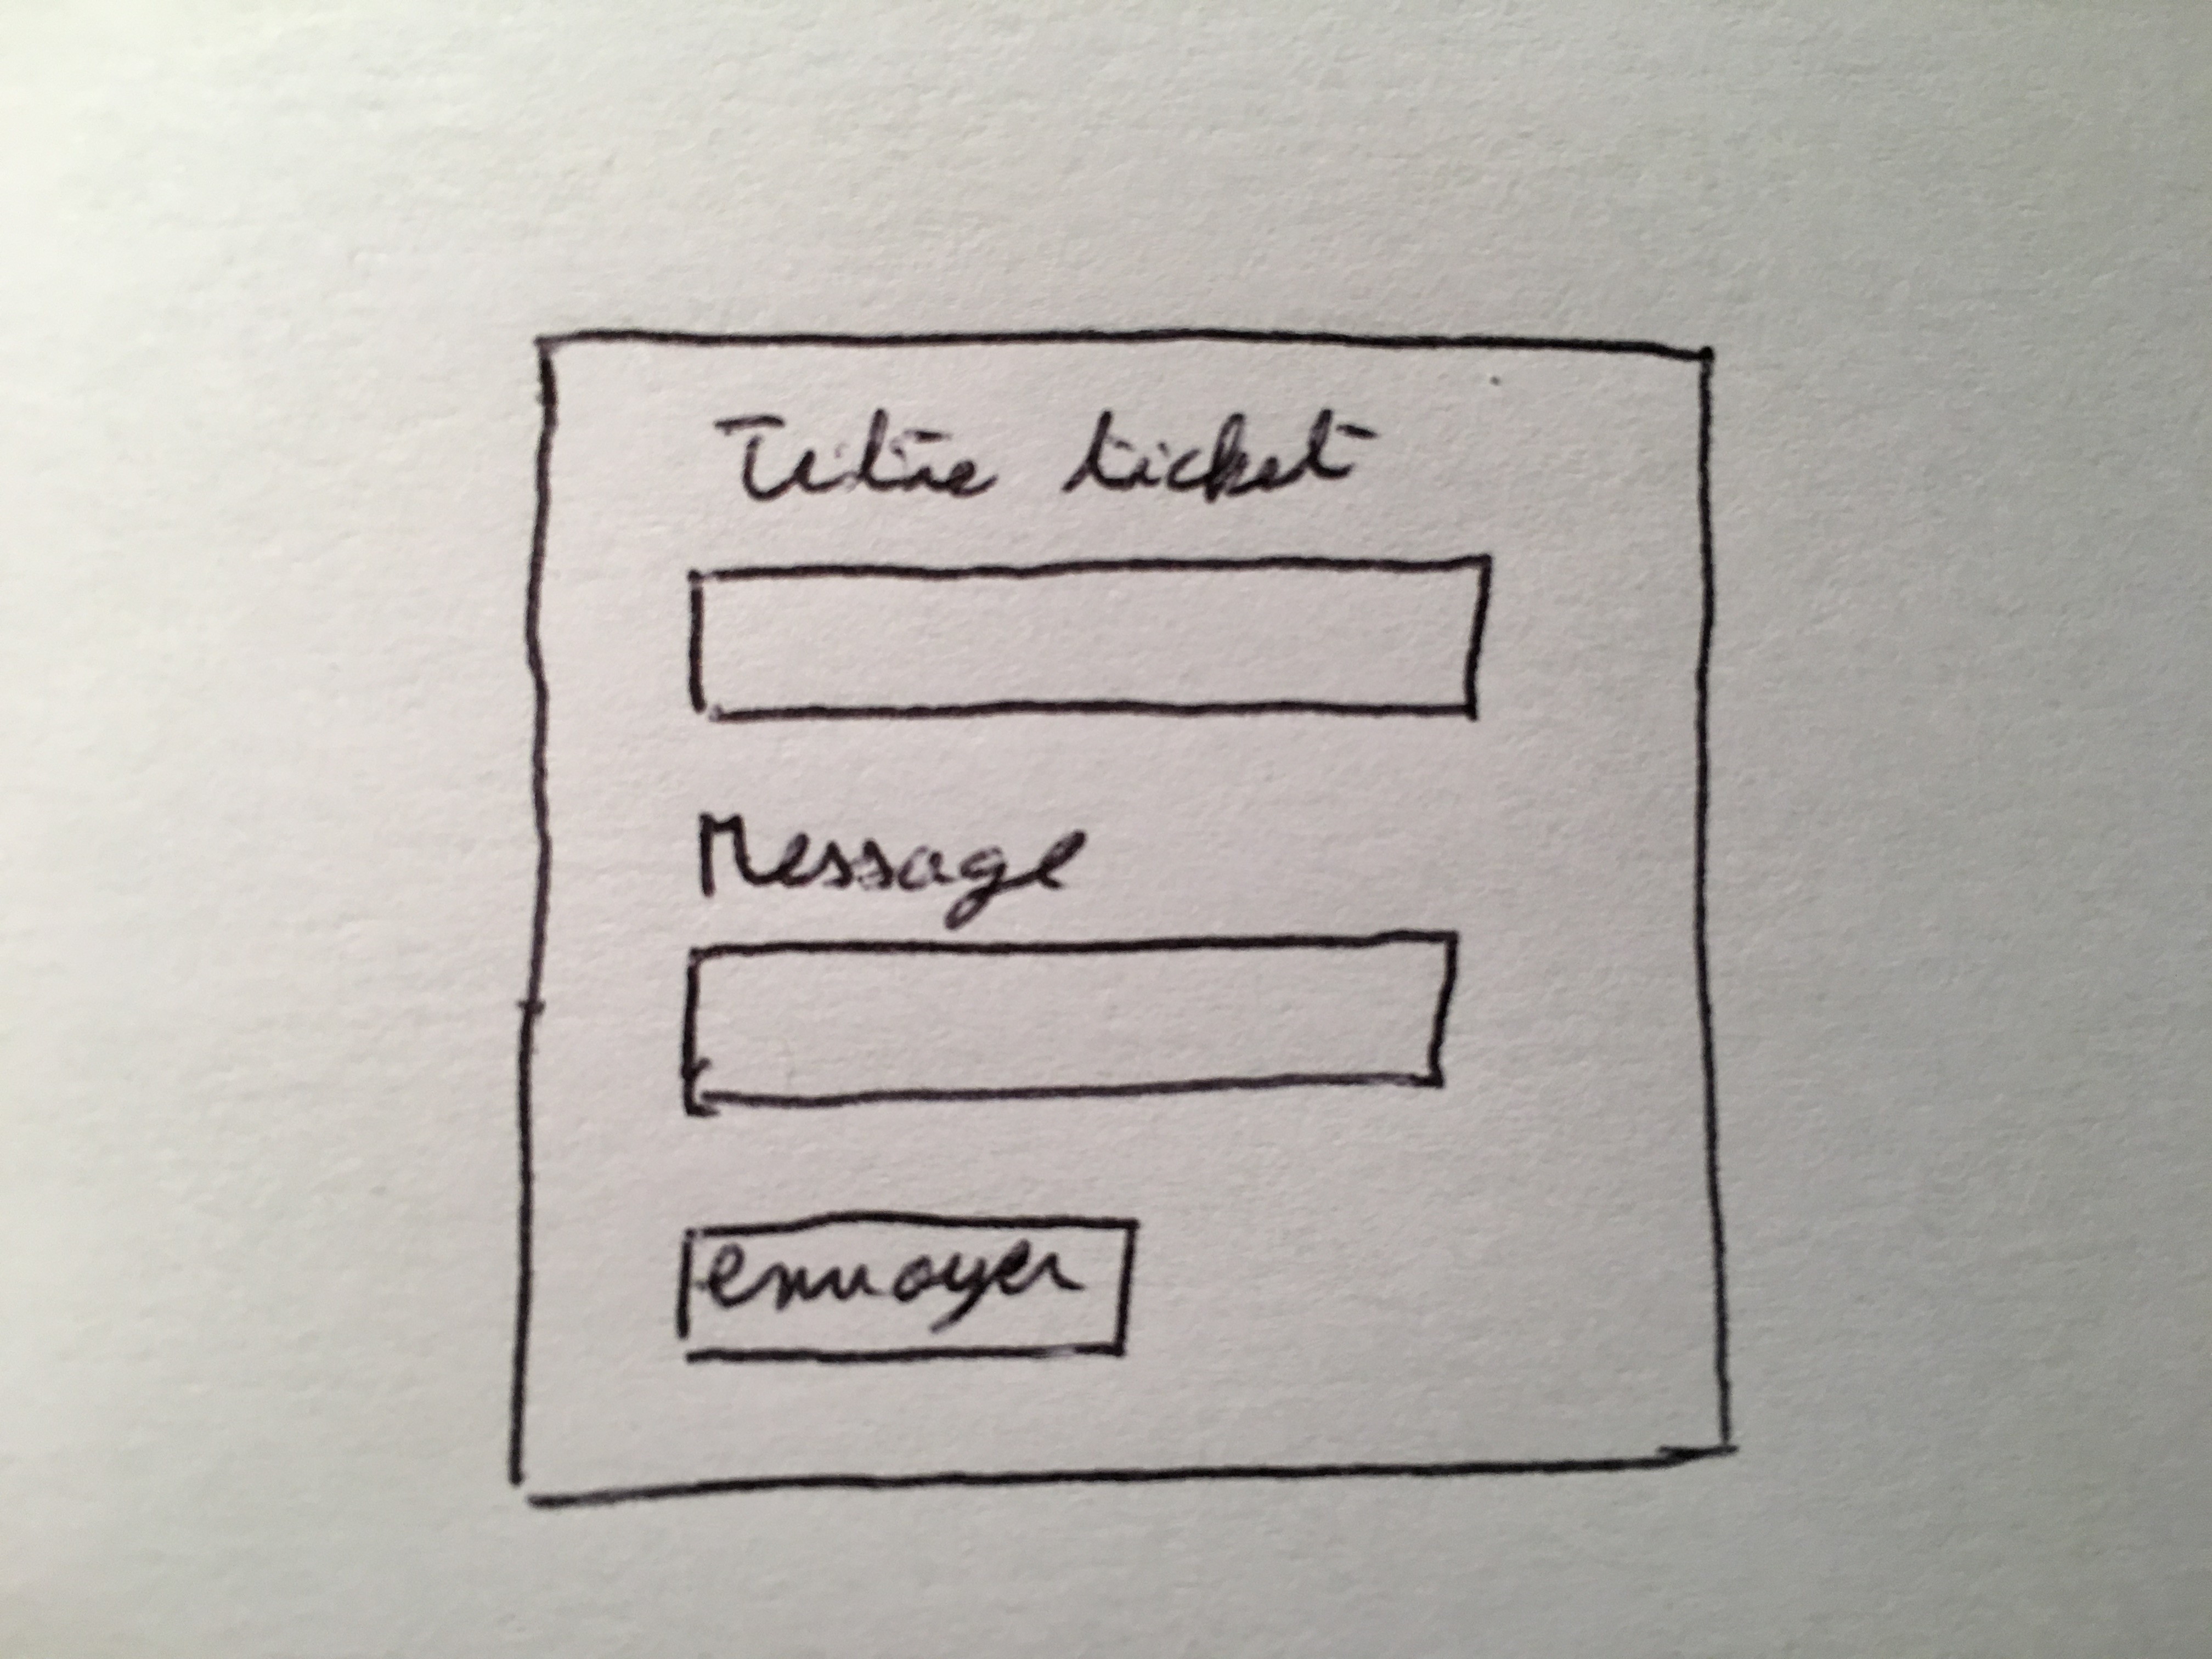 Titre ticket
Message
envoyer